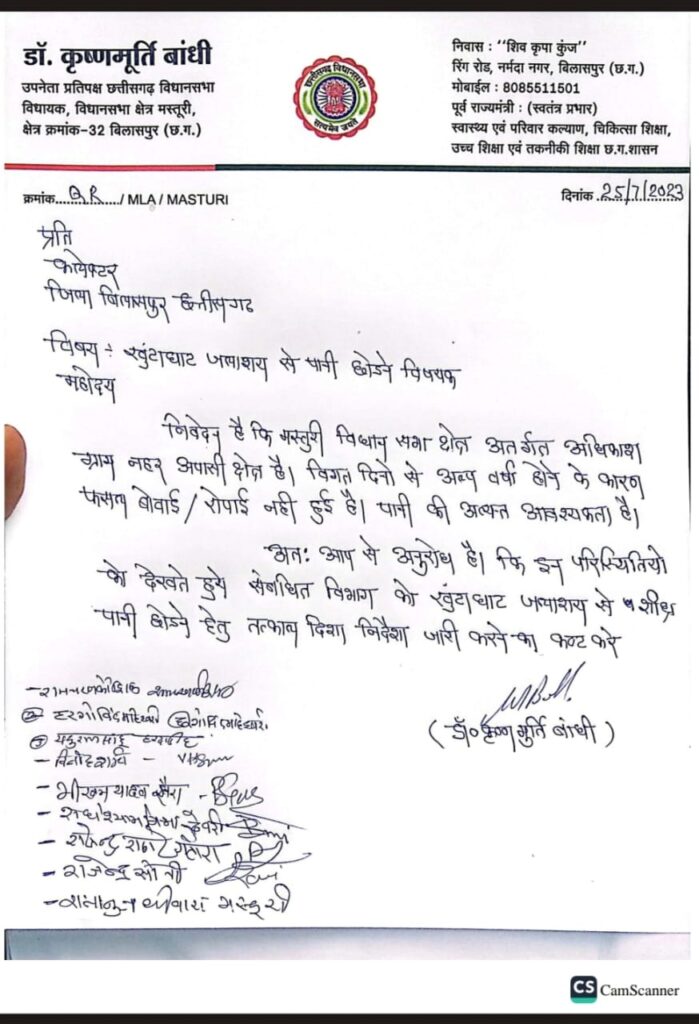 डॉ. कृष्णमूर्ति बांधी
उपनेता प्रतिपक्ष छत्तीसगढ़ विधानसभा
विधायक, विधानसभा क्षेत्र मस्तूरी,
क्षेत्र क्रमांक-32 बिलासपुर (छ.ग.)
छत्तीसगढ़ विधानसभा
सत्यमेव जयते
निवास : “शिव कृपा कुंज”
रिंग रोड, नर्मदा नगर, बिलासपुर (छ.ग.)
मोबाईल : 8085511501
पूर्व राज्यमंत्री : (स्वतंत्र प्रभार)
स्वास्थ्य एवं परिवार कल्याण, चिकित्सा शिक्षा,
उच्च शिक्षा एवं तकनीकी शिक्षा छ.ग.शासन
क्रमांक......../ MLA / MASTURI
दिनांक .25/7/2023
प्रति
कलेक्टर
जिला बिलासपुर छत्तीसगढ
विषय : खुंटाघाट जलाशय से पानी छोडने विषयक
महोदय
निवेदन है कि मस्तुरी विधान सभा क्षेत्र अतर्गत अधिकाश
ग्राम नहर अपासी क्षेत्र है। विगत दिनो से अल्प वर्षा होने के कारण
फसल बोवाई / रोपाई नही हुई है। पानी की अत्यत आवश्यकता है।
अत: आप से अनुरोध है। कि इन परिस्थितियो
को देखते हुये संबधित विभाग को खुंटाघाट जलाशय से शीध्र
पानी छोडने हेतु तत्काल दिशा निर्देश जारी करने का कष्ट करे
(डॉ० कृष्ण मुर्ति बांधी)
- राजेन्द्र सोनी
CS CamScanner